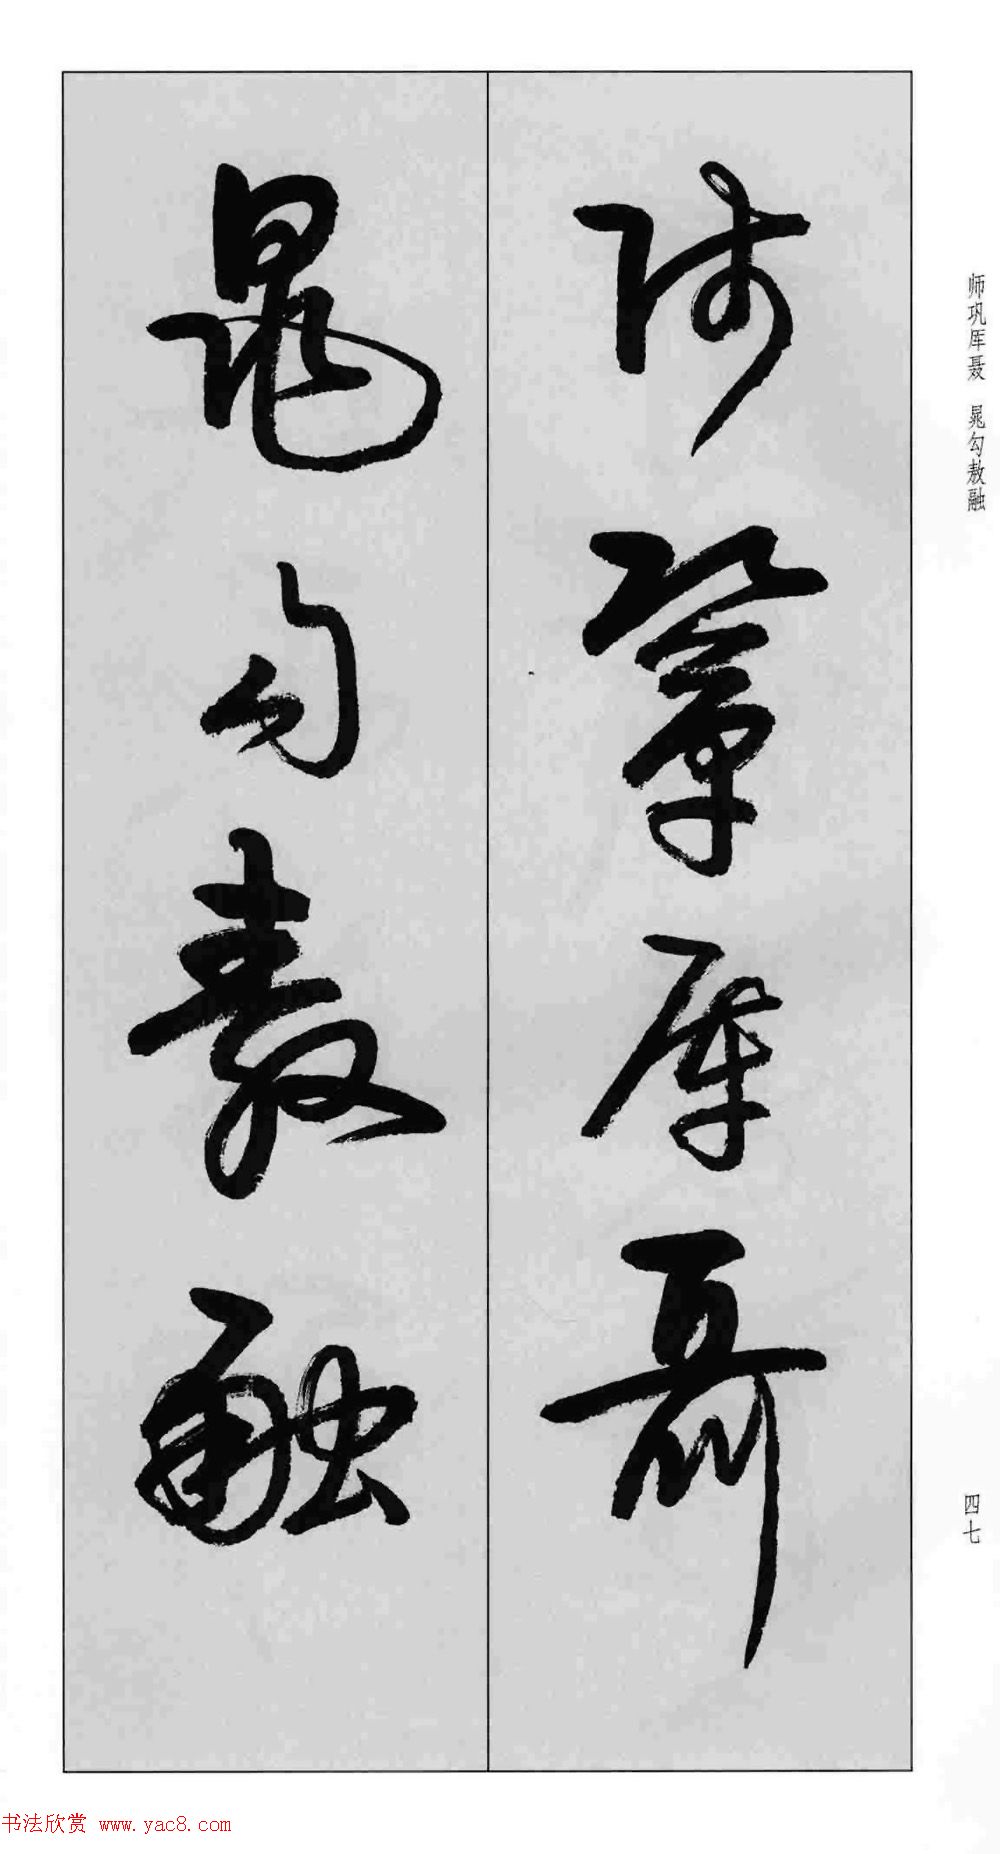 师巩厍聂
晁勾敖融
师巩厍聂 晁勾敖融
四七
书法欣赏 www.yac8.com